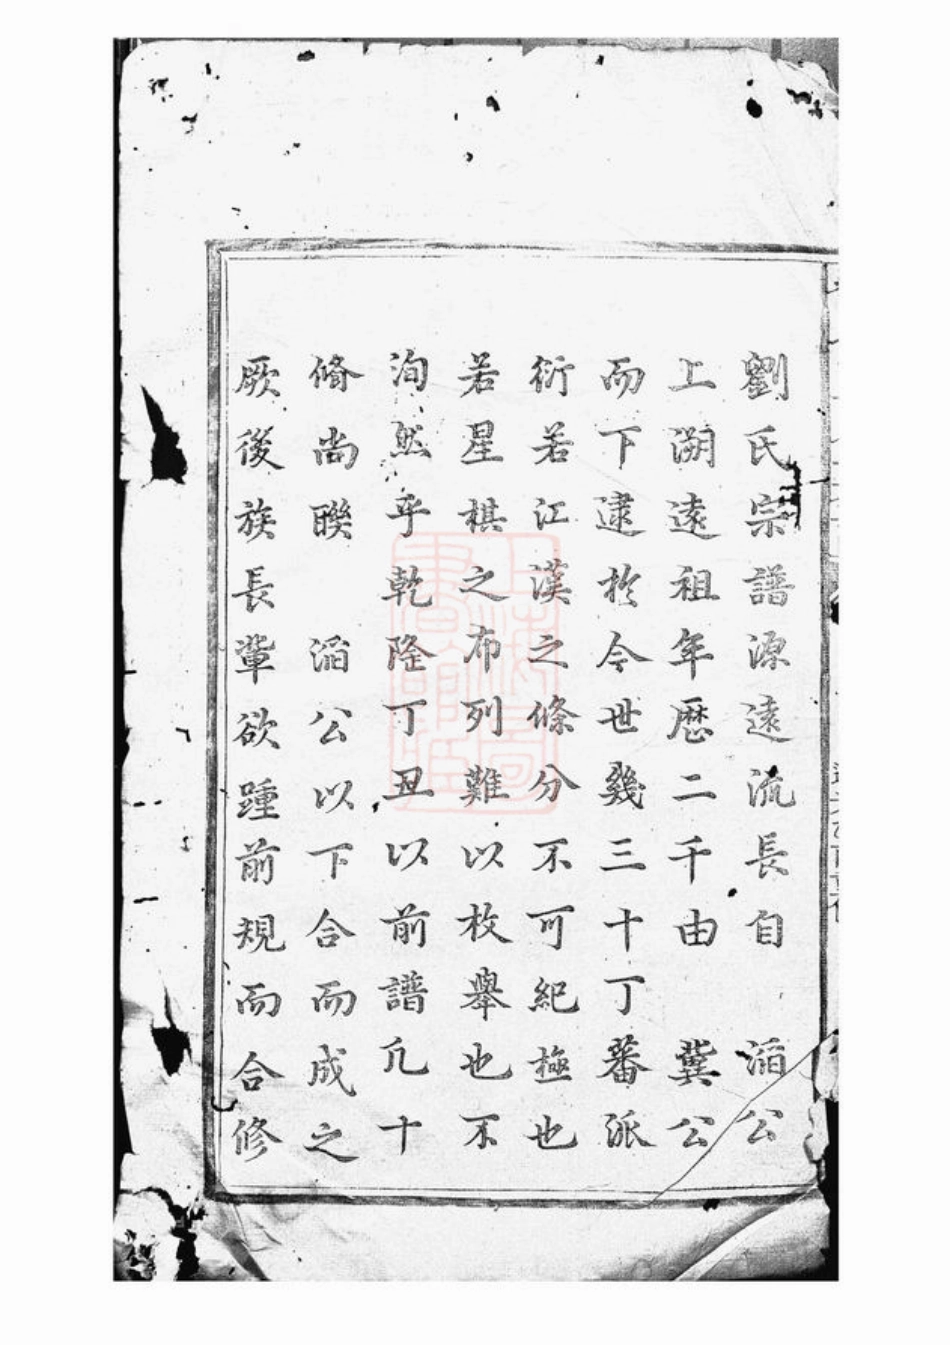 劉氏宗譜源遠流長自　滔公
上溯遠祖年歷二千由　冀公
而下逮於今世幾三十丁蕃派
衍若江漢之條分不可紀極也
若星棋之布列難以枚舉也不
洵然乎乾隆丁丑以前譜凡十
脩尚聯　滔公以下合而成之
厥後族長輩欲踵前規而合修